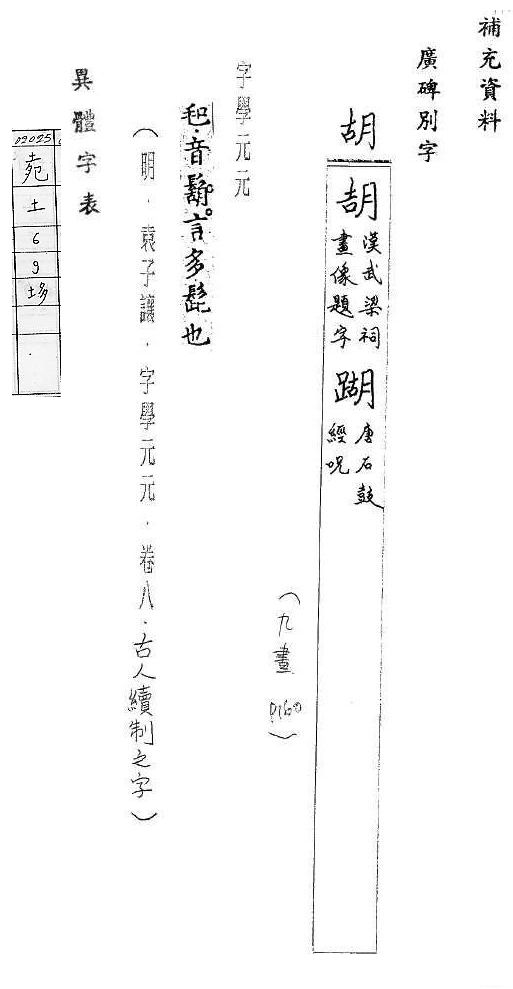 補充資料
廣碑別字
胡
漢武梁祠
畫像題字
唐石鼓
經呪
（九畫 P160）
字學元元
音鬍。言多髭也
（明．袁子讓．字學元元．卷八．古人續制之字）
異體字表
02025
土
6
9